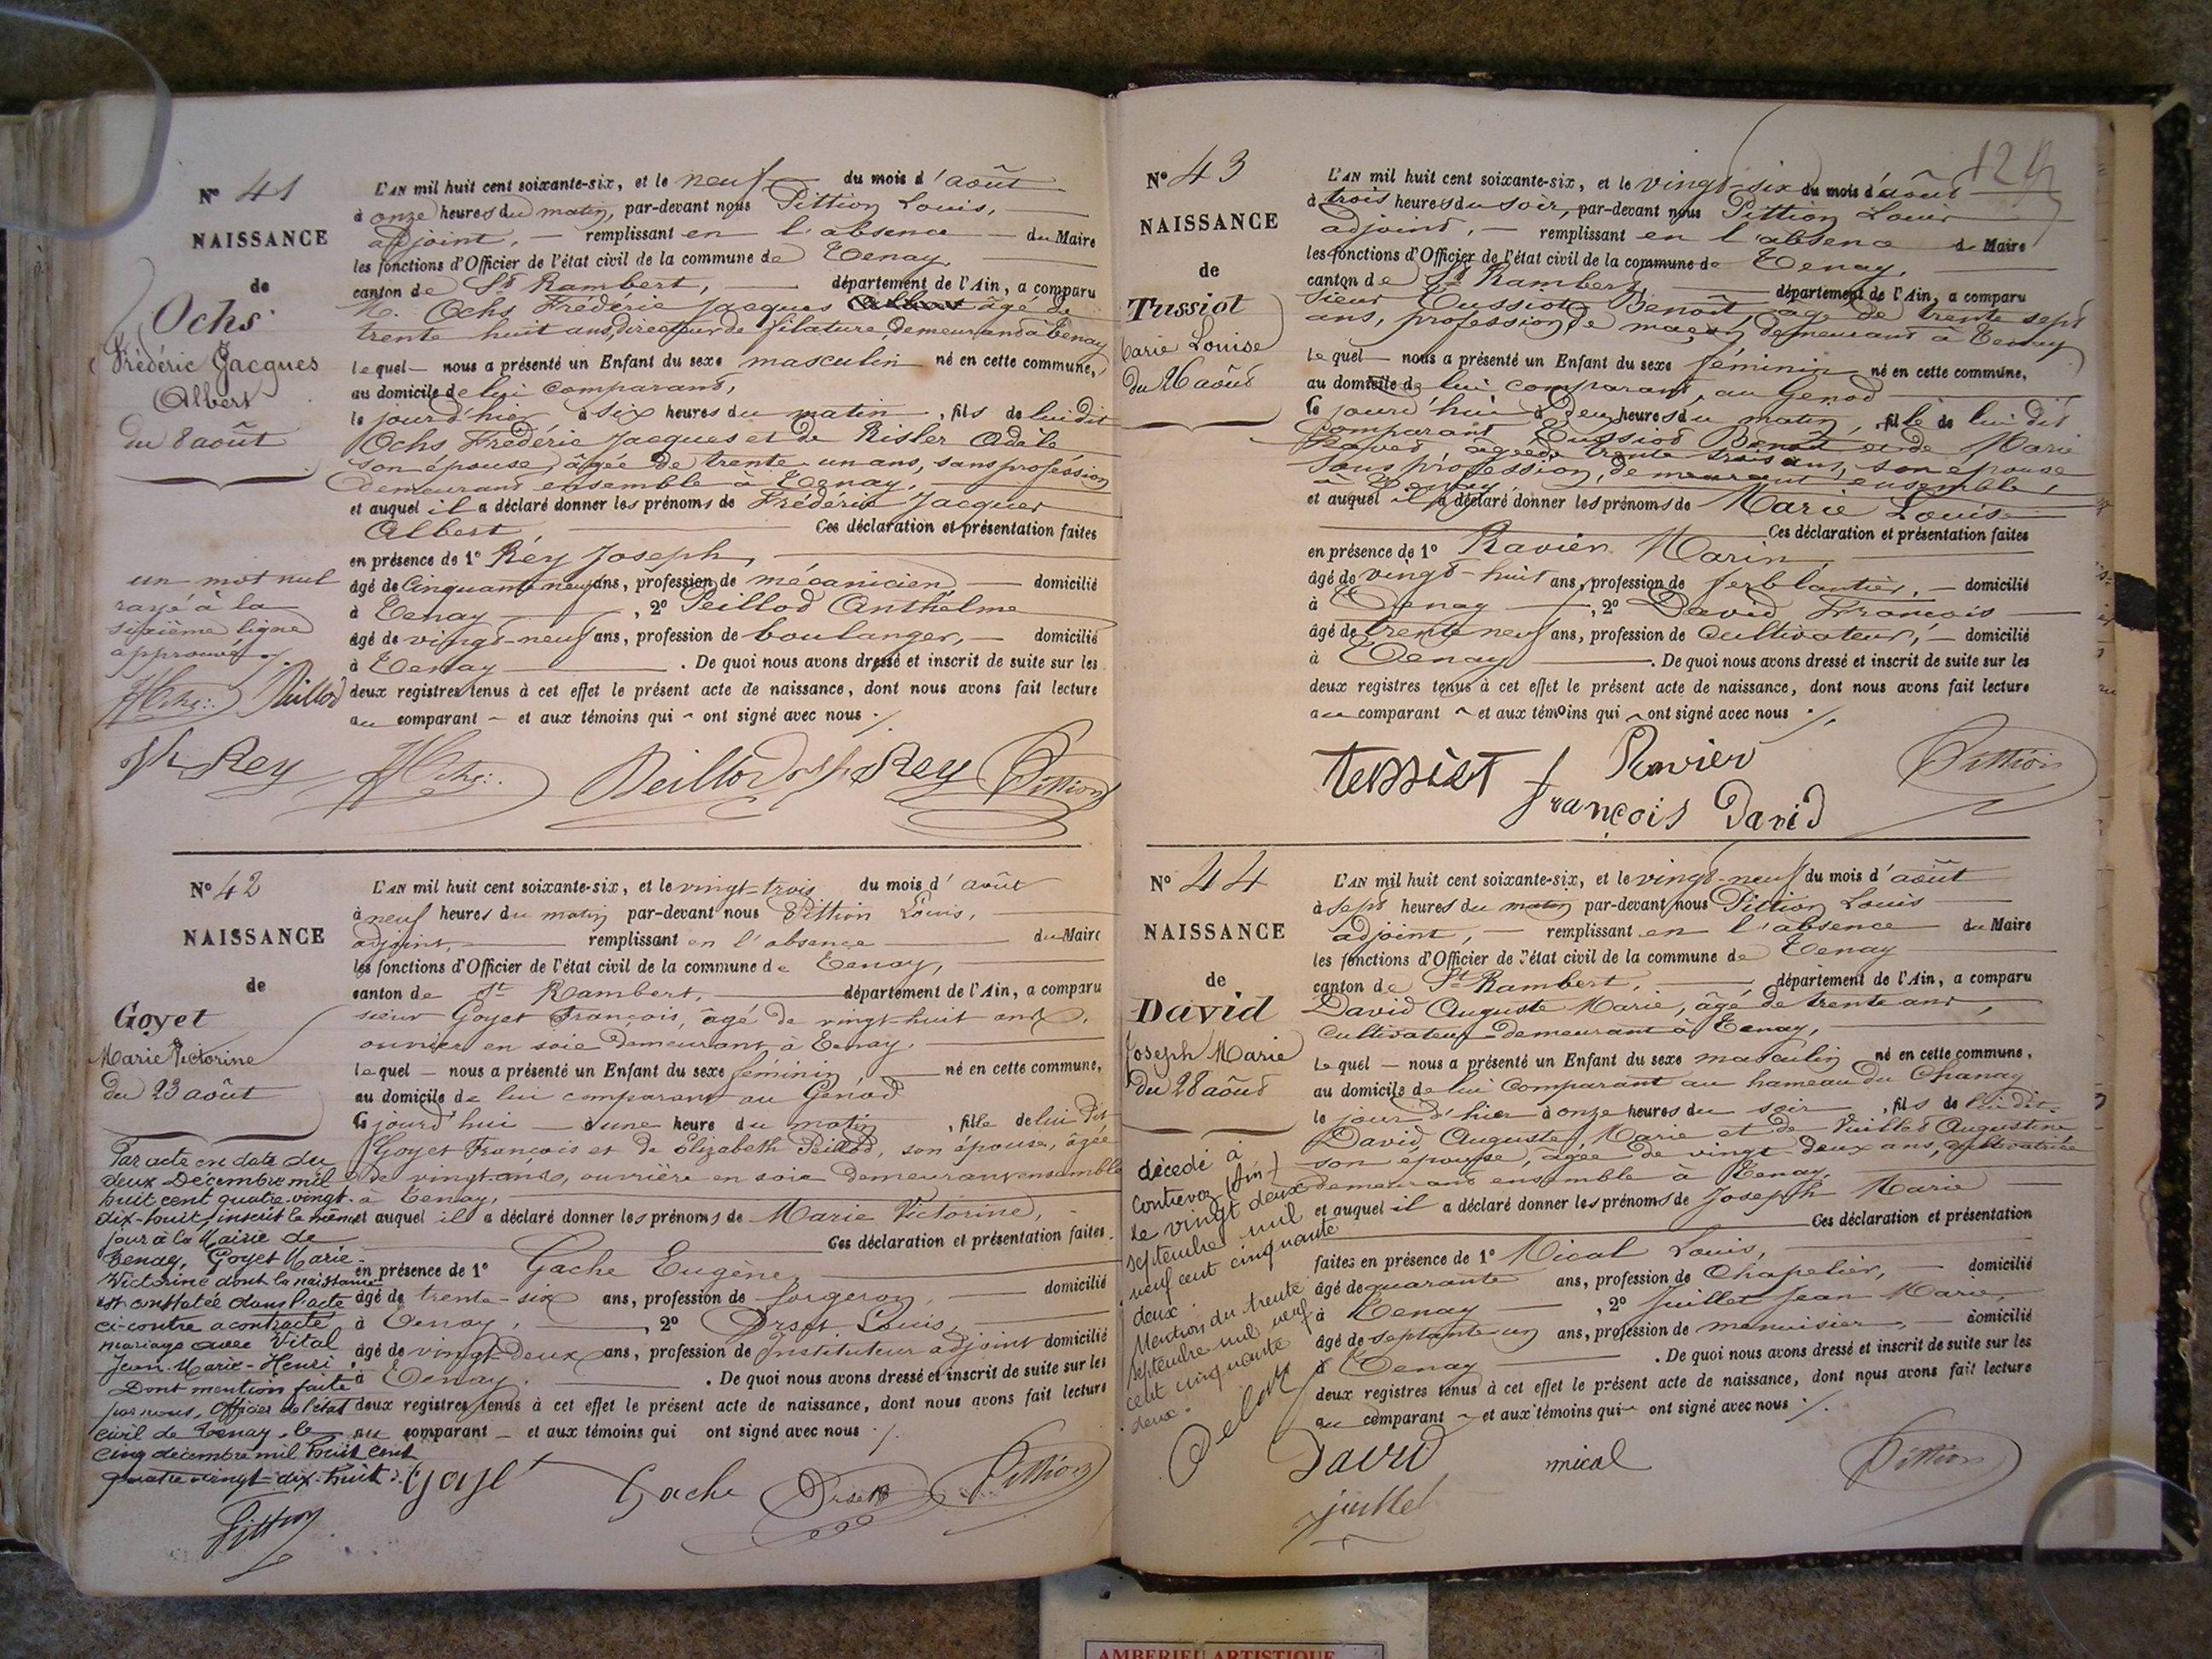 N° 41
NAISSANCE
de
Ochs
Frédéric Jacques
Albert
du 8 août
L'AN mil huit cent soixante-six, et le neuf du mois d'août
à onze heures du matin, par-devant nous Pittion Louis,
adjoint, remplissant en l'absence du Maire
les fonctions d'Officier de l'état civil de la commune de Tenay,
canton de St Rambert, département de l'Ain, a comparu
M. Ochs Frédéric Jacques âgé de
trente huit ans, directeur de filature, demeurant à Tenay
lequel nous a présenté un Enfant du sexe masculin né en cette commune,
au domicile de lui comparant,
le jour d'hier à six heures du matin, fils de lui dit
Ochs Frédéric Jacques et de Risler Adèle
son épouse, âgée de trente-un ans, sans profession
demeurant ensemble à Tenay,
et auquel il a déclaré donner les prénoms de Frédéric Jacques
Albert, Ces déclaration et présentation faites
en présence de 1° Rey Joseph,
âgé de Cinquante neuf ans, profession de mécanicien, domicilié
à Tenay, 2° Peillod Anthelme
âgé de vingt-neuf ans, profession de boulanger, domicilié
à Tenay. De quoi nous avons dressé et inscrit de suite sur les
deux registres tenus à cet effet le présent acte de naissance, dont nous avons fait lecture
au comparant et aux témoins qui ont signé avec nous ./.
un mot nul
rayé à la
sixième ligne
approuvé
Peillod
Jh Rey Peillod Jh Rey Pittion
N° 42
NAISSANCE
de
Goyet
Marie Victorine
du 23 août
L'AN mil huit cent soixante-six, et le vingt-trois du mois d'août
à neuf heures du matin par-devant nous Pittion Louis,
adjoint, remplissant en l'absence du Maire
les fonctions d'Officier de l'état civil de la commune de Tenay,
canton de St Rambert, département de l'Ain, a comparu
sieur Goyet François, âgé de vingt-huit ans,
ouvrier en soie demeurant à Tenay,
lequel nous a présenté un Enfant du sexe féminin né en cette commune,
au domicile de lui comparant au Genod
Ce jourd'hui à une heure du matin, fille de lui dit
Goyet François et de Elizabeth Peillod, son épouse, âgée
de vingt ans, ouvrière en soie demeurant ensemble
à Tenay,
et auquel il a déclaré donner les prénoms de Marie Victorine,
Ces déclaration et présentation faites
en présence de 1° Gache Eugène,
âgé de trente-six ans, profession de forgeron, domicilié
à Tenay, 2° Orset Louis,
âgé de vingt-deux ans, profession de Instituteur adjoint domicilié
à Tenay. De quoi nous avons dressé et inscrit de suite sur les
deux registres tenus à cet effet le présent acte de naissance, dont nous avons fait lecture
au comparant et aux témoins qui ont signé avec nous ./.
Par acte en date du
deux Décembre mil
huit cent quatre-vingt-
dix-huit, inscrit le même
jour à la Mairie de
Tenay, Goyet Marie-
Victorine dont la naissance
est constatée dans l'acte
ci-contre a contracté
mariage avec Vital
Jean-Marie-Henri.
Dont mention faite
par nous, Officier de l'état
civil de Tenay, le
cinq décembre mil huit cent
quatre vingt-dix-huit.
Pittion
Goyet Gache Orset Pittion
124
N° 43
NAISSANCE
de
Tussiot
Marie Louise
du 26 août
L'AN mil huit cent soixante-six, et le vingt-six du mois d'août
à trois heures du soir, par-devant nous Pittion Louis
adjoint, remplissant en l'absence d Maire
les fonctions d'Officier de l'état civil de la commune de Tenay,
canton de St Rambert, département de l'Ain, a comparu
sieur Tussiot Benoît, âgé de trente sept
ans, profession de maçon, demeurant à Tenay
lequel nous a présenté un Enfant du sexe féminin né en cette commune,
au domicile de lui comparant, au Genod
Ce jourd'hui à deux heures du matin, fille de lui dit
comparant Tussiot Benoît et de Marie
âgée de trente trois ans, son épouse
sans profession, demeurant ensemble
à Tenay,
et auquel il a déclaré donner les prénoms de Marie Louise
Ces déclaration et présentation faites
en présence de 1° Ravier Marin,
âgé de vingt-huit ans, profession de ferblantier, domicilié
à Tenay, 2° David François
âgé de trente neuf ans, profession de Cultivateur, domicilié
à Tenay. De quoi nous avons dressé et inscrit de suite sur les
deux registres tenus à cet effet le présent acte de naissance, dont nous avons fait lecture
au comparant et aux témoins qui ont signé avec nous ./.
Ravier Pittion
françois David
N° 44
NAISSANCE
de
David
Joseph Marie
du 28 août
L'AN mil huit cent soixante-six, et le vingt-neuf du mois d'août
à sept heures du matin par-devant nous Pittion Louis
adjoint, remplissant en l'absence du Maire
les fonctions d'Officier de l'état civil de la commune de Tenay
canton de St Rambert, département de l'Ain, a comparu
David Auguste Marie, âgé de trente ans,
cultivateur demeurant à Tenay,
lequel nous a présenté un Enfant du sexe masculin né en cette commune,
au domicile de lui comparant au hameau du Chanay
le jour d'hier à onze heures du soir, fils de lui dit
David Auguste Marie et de Augustine
son épouse, âgée de vingt-deux ans, cultivatrice
demeurant ensemble à Tenay,
et auquel il a déclaré donner les prénoms de Joseph Marie
Ces déclaration et présentation
faites en présence de 1° Mical Louis,
âgé de quarante ans, profession de Chapelier, domicilié
à Tenay, 2° Juillet Jean Marie,
âgé de septante-un ans, profession de menuisier, domicilié
à Tenay. De quoi nous avons dressé et inscrit de suite sur les
deux registres tenus à cet effet le présent acte de naissance, dont nous avons fait lecture
au comparant et aux témoins qui ont signé avec nous ./.
décédé à
Contrevoz (Ain)
le vingt deux
septembre mil
neuf cent cinquante
deux.
Mention du trente
septembre mil neuf
cent cinquante
deux.
David mical Pittion
juillet
AMBERIEU ARTISTIQUE